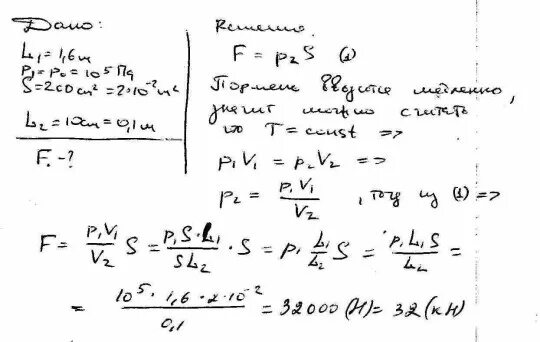 Дано:
L₁ = 1,6 м
P₁ = P₀ = 10⁵ Па
S = 200 см² = 2·10⁻² м²
L₂ = 10 см = 0,1 м
F. - ?
Решение.
F = p₂ S (1)
Поршень медленно,
значит можно считать
T = const =>
p₁ V₁ = p₂ V₂ =>
p₂ = p₁ V₁ / V₂ , из (1) =>
F = p₁V₁ / V₂ S = p₁ S · L₁ / S L₂ · S = p₁ L₁ / L₂ S = p₁ L₁ S / L₂ =
= 10⁵ · 1,6 · 2 · 10⁻² / 0,1 = 32000 (Н) = 32 (кН)